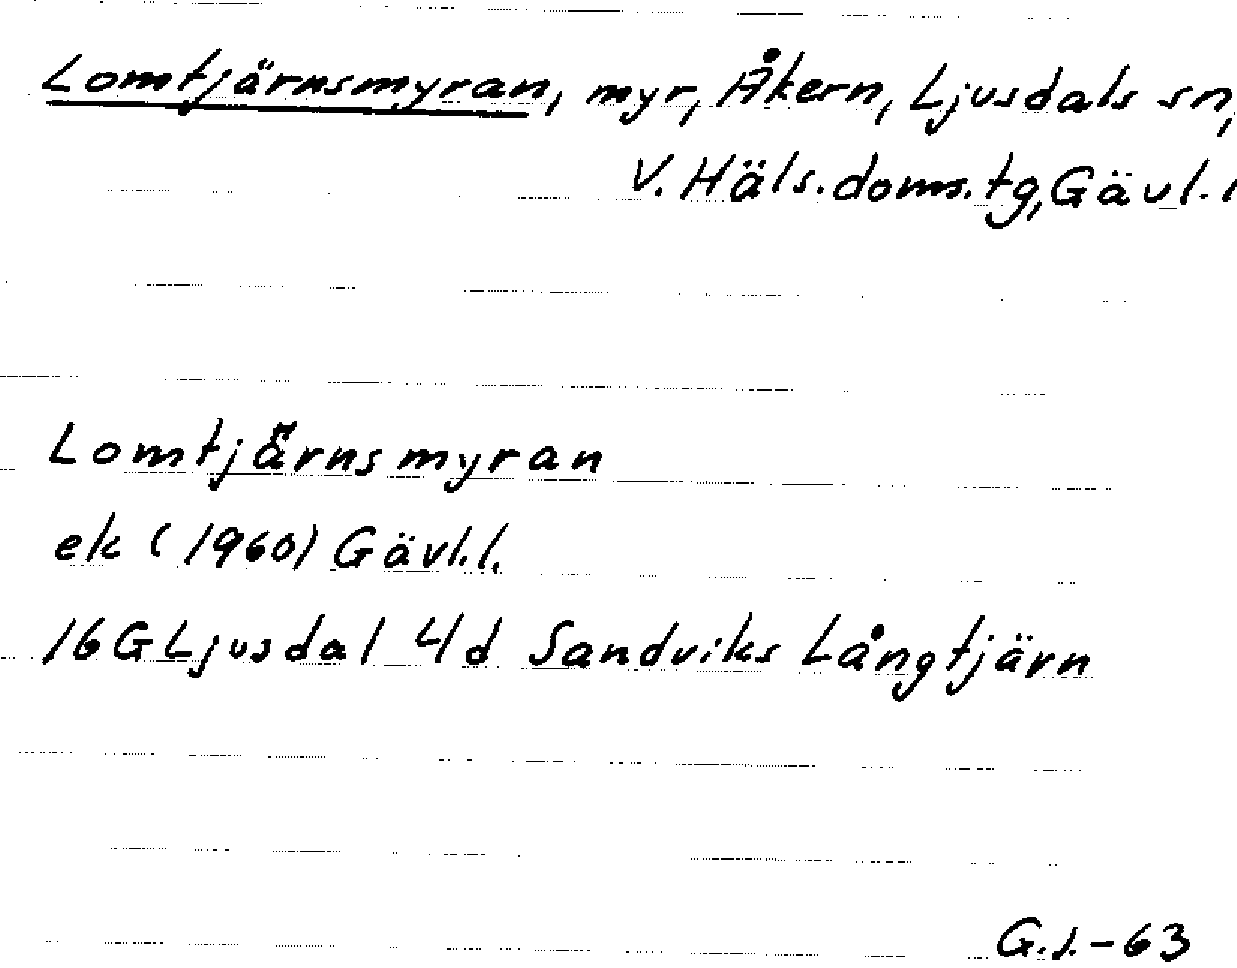 Lomtjärnsmyran, myr, Åkern, Ljusdals sn,
V. Häls. doms. tg, Gävl. l
Lomtjärnsmyran
ek (1960) Gävl. l.
16 G Ljusdal 4d Sandviks Långtjärn
G.J.-63